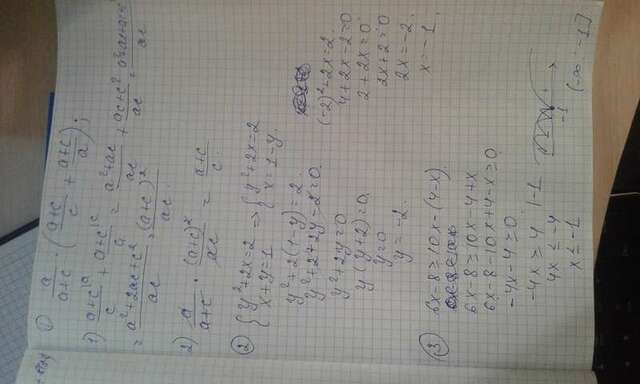 ① a/(a+c) · ((a+c)/c + (a+c)/a);
1) (a+c)/c |a + (a+c)/a |c = (a²+ac)/ac + (ac+c²)/ac = (a²+ac+ac+c²)/ac
= (a²+2ac+c²)/ac = (a+c)²/ac.
2) a/(a+c) · (a+c)²/ac = (a+c)/c
② { y²+2x=2 => { y²+2x=2
x+y=1 x=1-y.
y²+2(1-y)=2.
y²+2+2y-2=0.
y²+2y=0
y(y+2)=0.
y=0
y=-2.
(-2)²+2x=2.
4+2x-2=0
2+2x=0
2x+2=0
2x=-2.
x=-1
③ 6x-8≥10x-(4-x).
6x-8≥10x-4+x
6x-8-10x+4-x≥0
-4x-4≥0
-4x≥4 |-1
4x≤-4
x≤-1
-1
(-∞ -1]